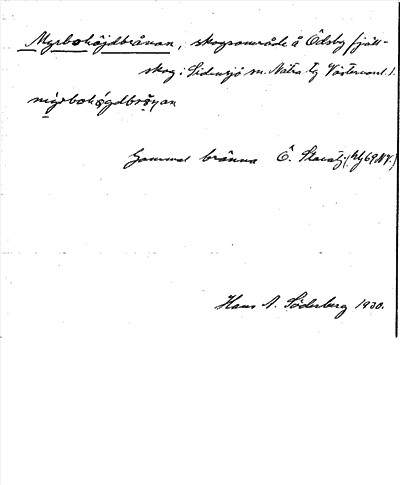 Myrbohöjdbrånan, skogsområde å Ödsby fjäll-
skog i Sidensjö sn. Nätra tg Västernorrl. l.
myrbohögdbrånan
Gammal bränna Ö.
Hans A. Söderberg 1930.